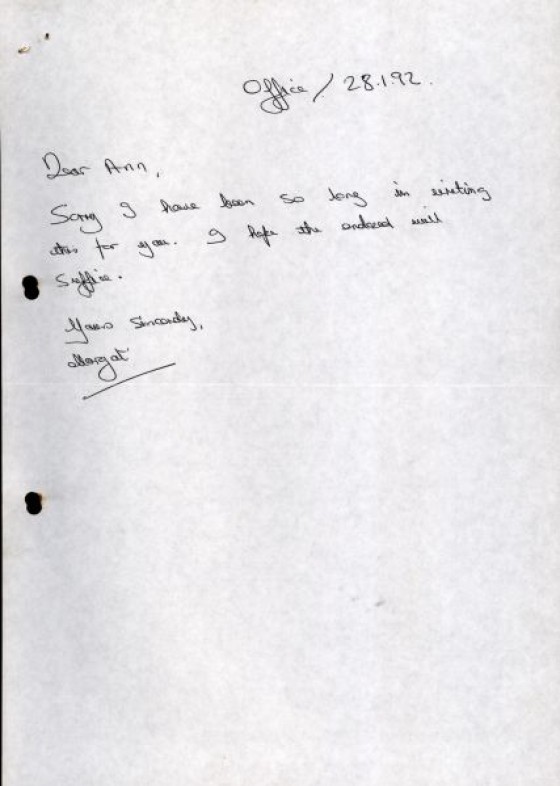 Office / 28.1.92.
Dear Ann,
Sorry I have been so long in writing
this for you. I hope the enclosed will
suffice.
Yours Sincerely,
Margat